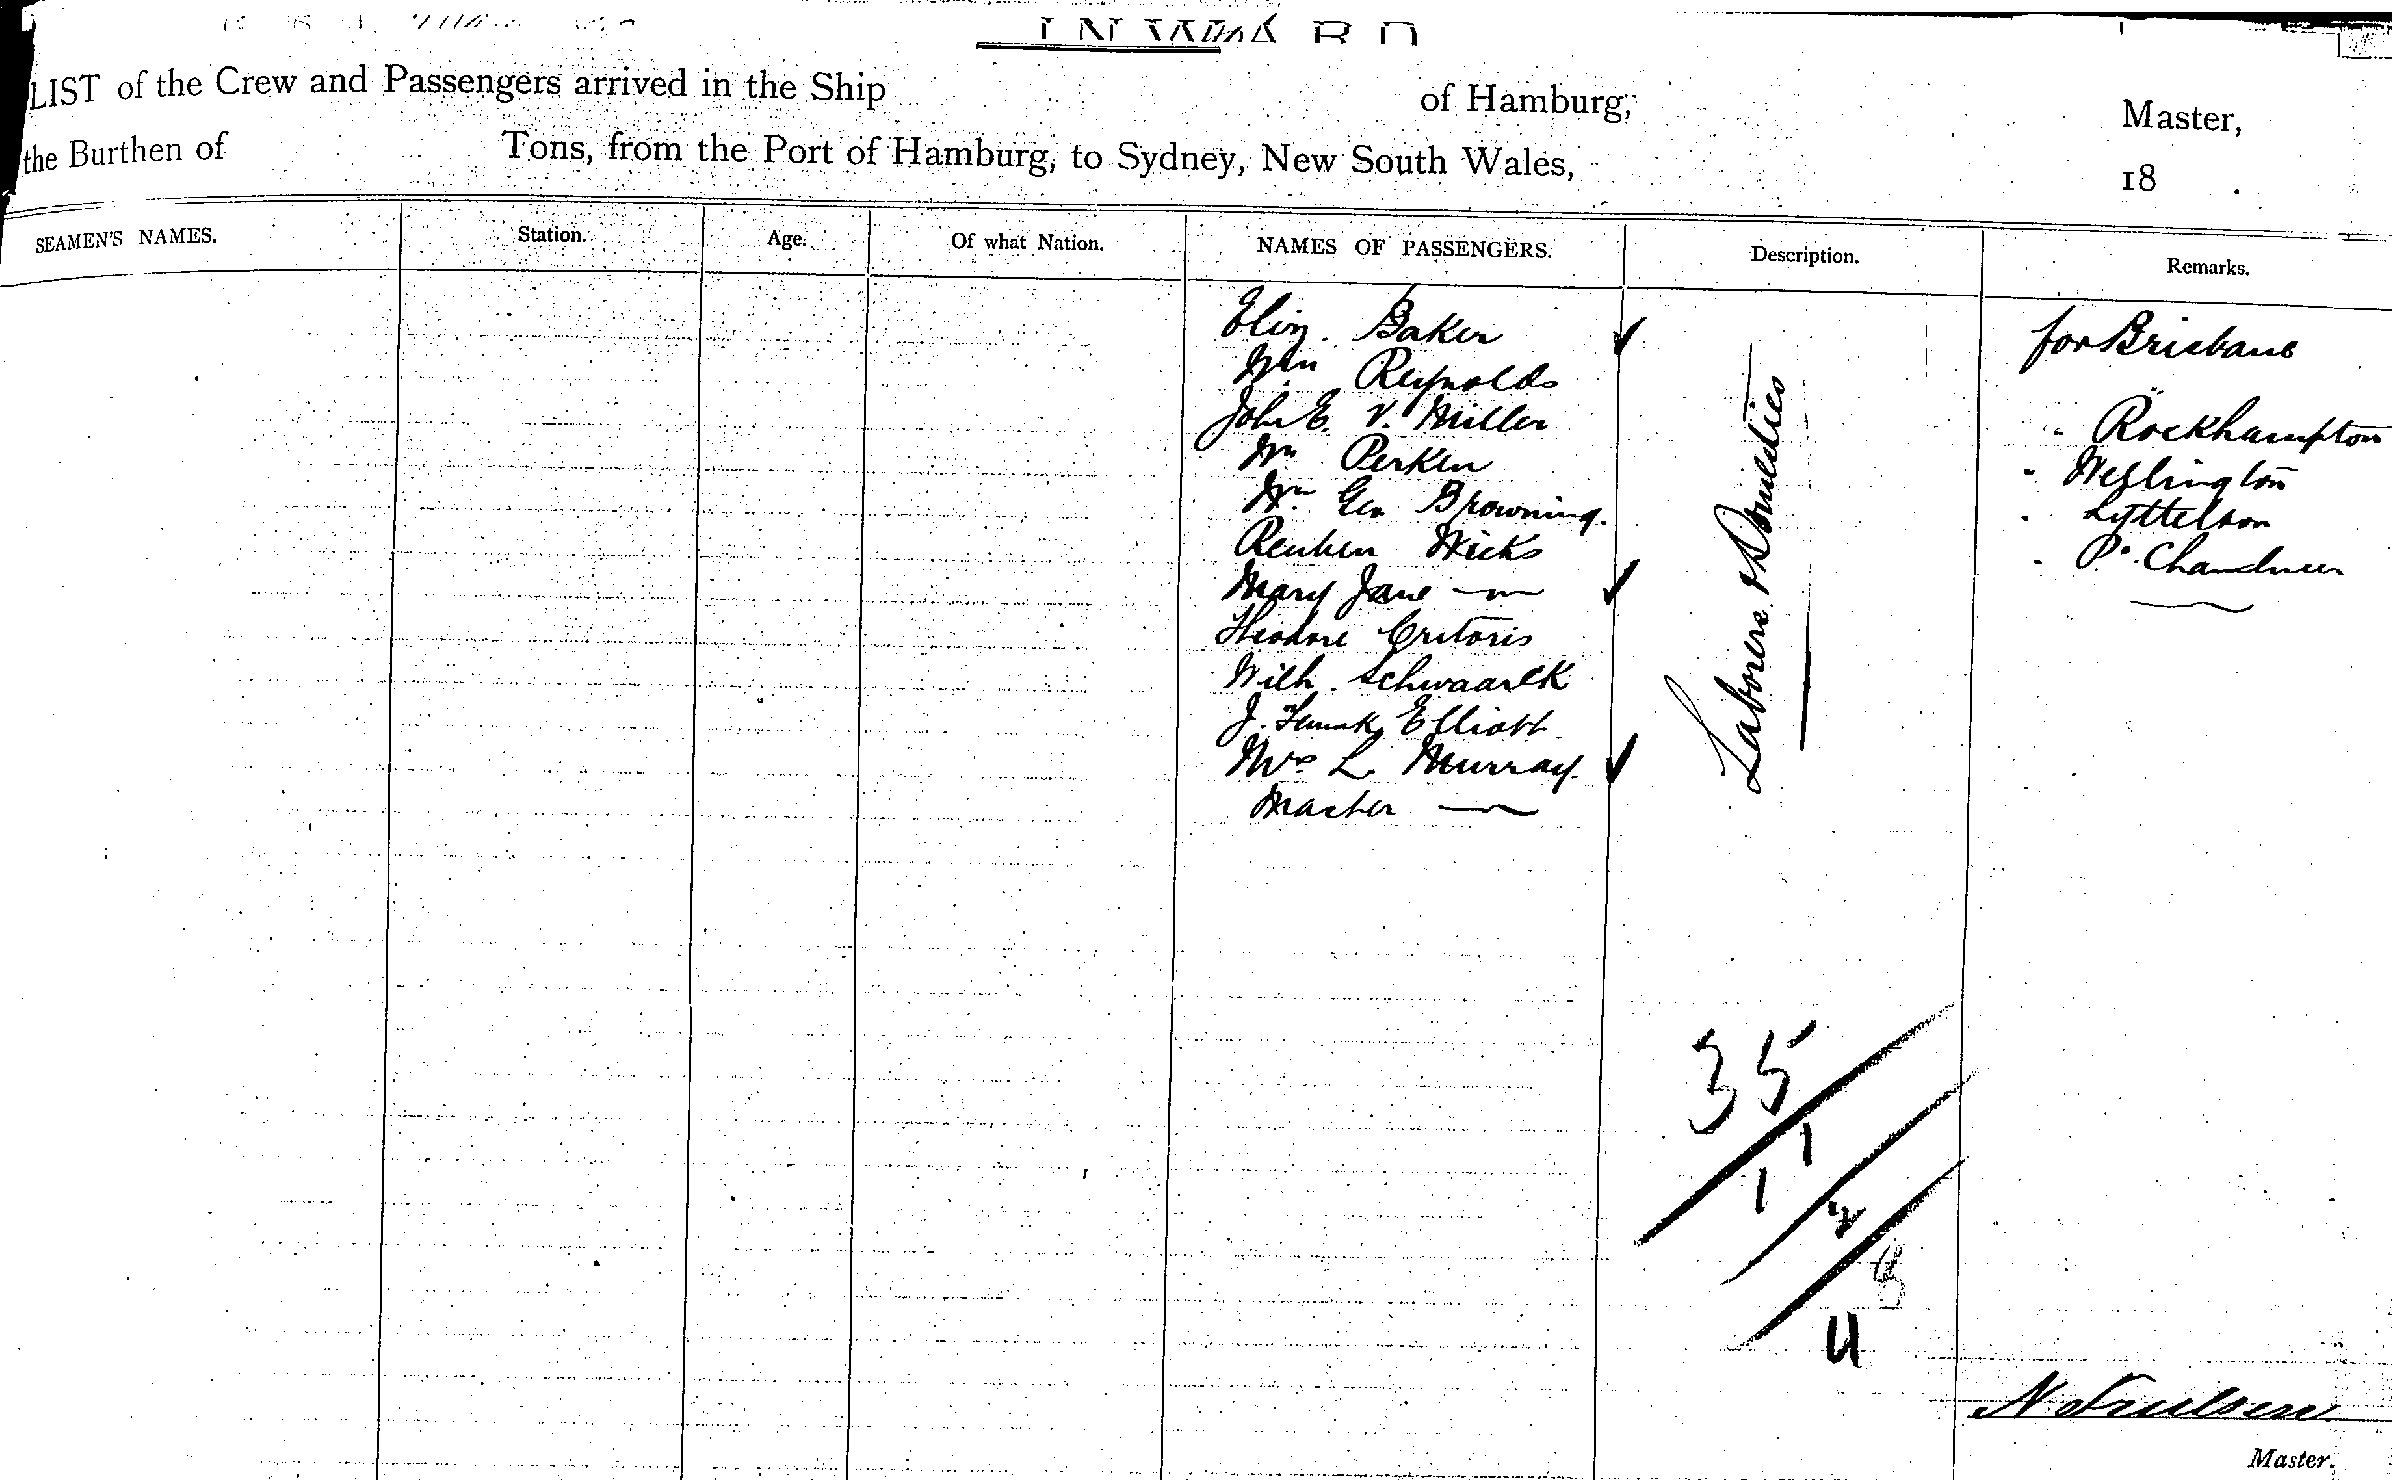 INWARD
LIST of the Crew and Passengers arrived in the Ship of Hamburg, Master,
the Burthen of Tons, from the Port of Hamburg, to Sydney, New South Wales, 18 .
SEAMEN'S NAMES. Station. Age. Of what Nation. NAMES OF PASSENGERS. Description. Remarks.
Eliz. Baker for Brisbane
Wm Reynolds
John E. V. Miller " Rockhampton
Wm Perken " Wellington
Wm Geo Browning. " Lyttelton
Reuben Wicks " Pt. Chandmer
Mary Jane —
Theodore Critoris
Wilh. Schwaarck
J. Frank Elliott
Mrs L. Murray.
Master —
Laborers & Families
35
1
1
2
3
4
Master.